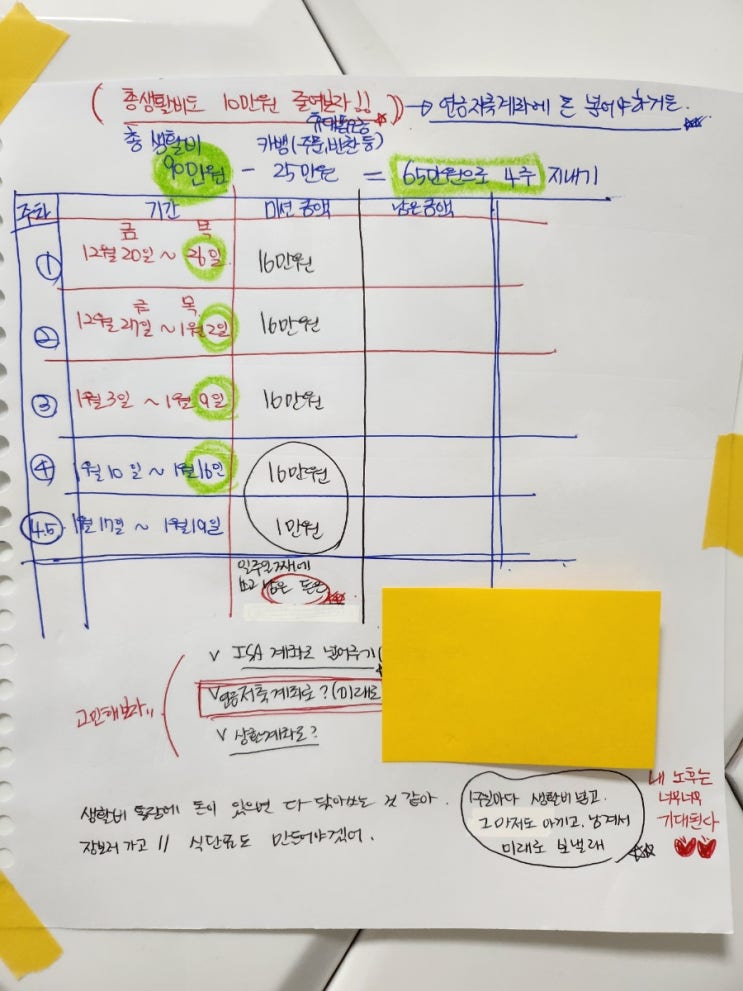 ( 총생활비도 10만원 줄여보자!! ) → 연금저축계좌에 돈 넣어야하거든.
총 생활비 카뱅(주문,반찬 등)
90만원 - 25만원 = 65만원으로 4주 지내기
주차 기간 미션 금액 남은금액
금 목
① 12월 20일 ~ 26일 16만원
금 목
② 12월 27일 ~ 1월 2일 16만원
③ 1월 3일 ~ 1월 9일 16만원
④ 1월 10일 ~ 1월 16일 16만원
4.5 1월 17일 ~ 1월 19일 1만원
일주일째에
쓰고 남은 돈은
v ISA 계좌로 넘어주기(
고민해보자!!
v 연금저축계좌로?(미래로
v 상환계좌로?
생활비 통장에 돈이 있으면 다 닦아쓰는 것 같아.
장보러 가고 !! 식단표도 만들어야겠어.
1주일마다 생활비 넣고.
그마저도 아끼고, 남겨서
미래로 보낼래
내 노후는
너무너무
기대된다